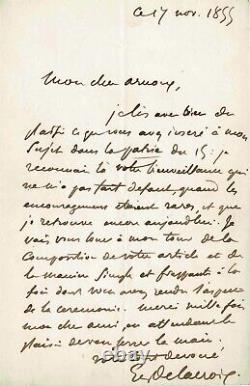 ce 17 nov. 1855
Mon cher arnoux,
je lis avec bien du
plaisir ce que vous avez inséré à mon
sujet dans la patrie du 15: je
reconnais là votre bienveillance qui
ne m'a pas fait defaut quand les
encouragements étaient rares, et que
je retrouve encore aujourd'hui. Je
vais vous louer à mon tour de la
composition de votre article et de
la manière simple et frappante à la
fois dont vous avez rendu l'aspect
de la ceremonie. merci mille fois
mon cher ami, en attendant le
plaisir de vous serrer la main.
votre devoué
EugDelacroix